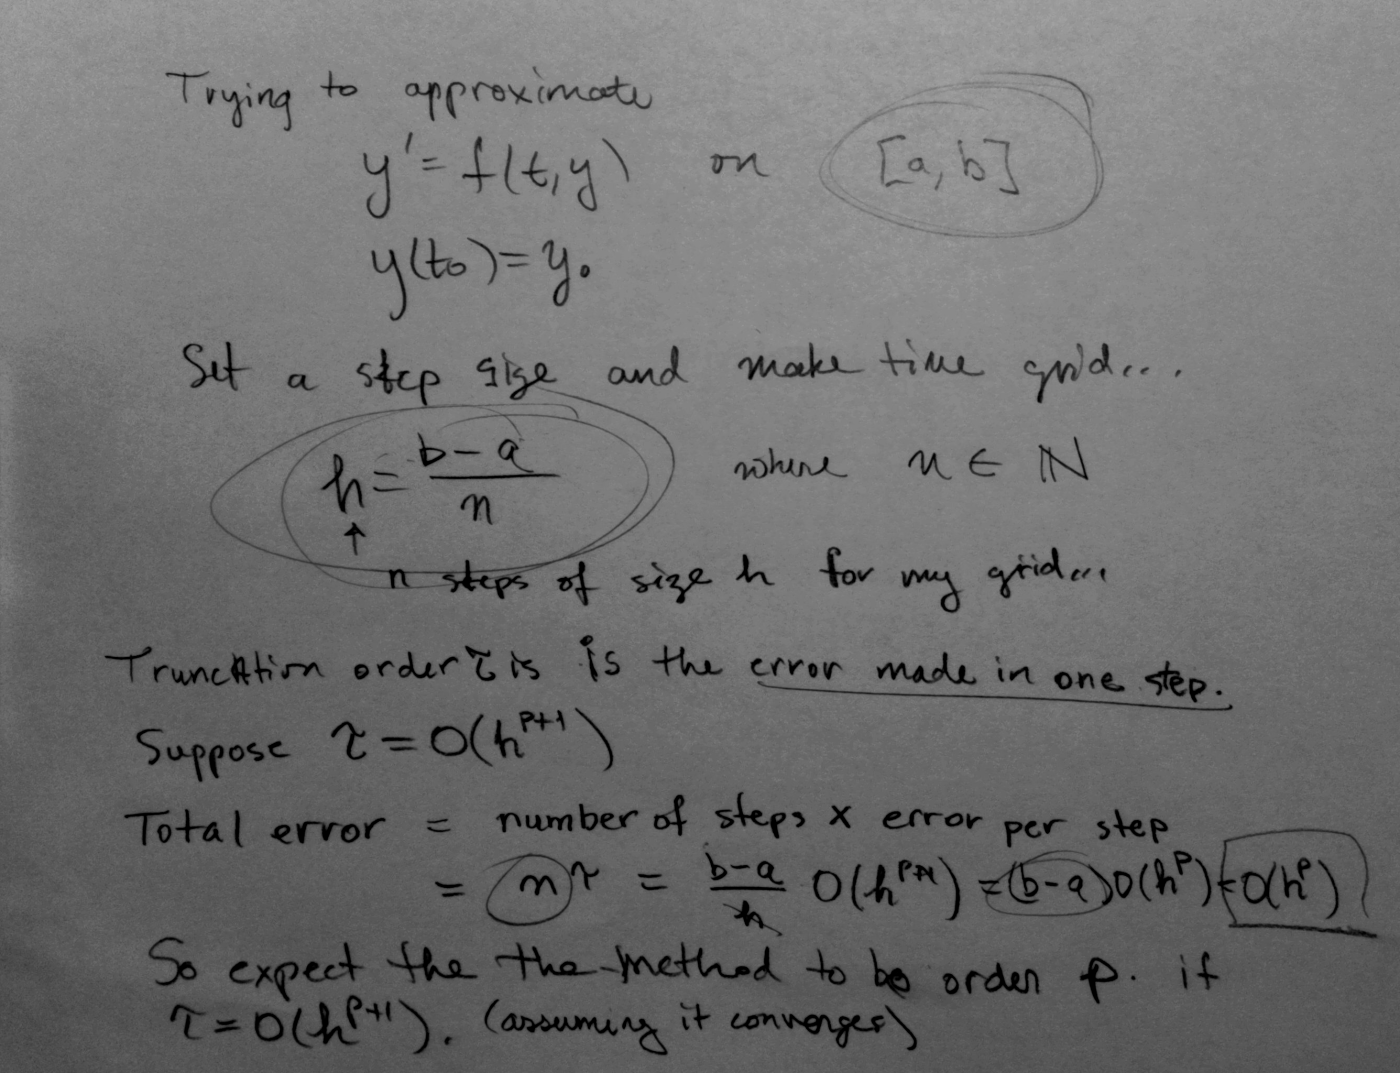 Trying to approximate
y' = f(t, y) on [a, b]
y(t₀) = y₀
Set a step size and make time grid...
h = (b-a)/n where n ∈ ℕ
↑
n steps of size h for my grid...
Truncation order τ is is the error made in one step.
Suppose τ = O(h^{p+1})
Total error = number of steps x error per step
= nτ = (b-a)/h O(h^{p+1}) = (b-a)O(h^p) = O(h^p)
So expect the the method to be order p. if
τ = O(h^{p+1}). (assuming it converges)